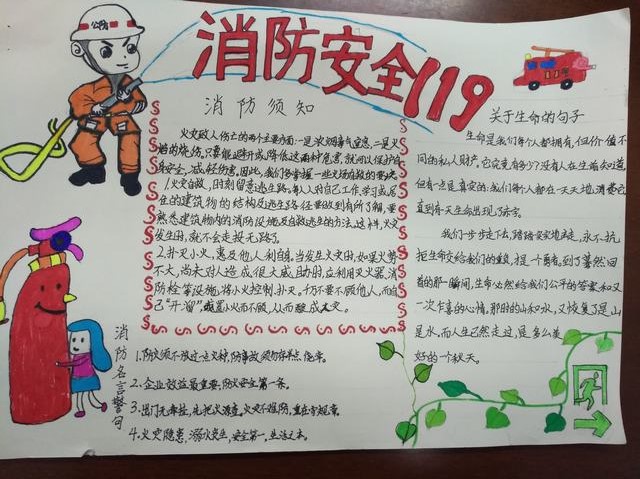 公防
消防安全119
消防须知
火灾致人伤亡的两个主要方面:一是浓烟毒气窒息,二是火
焰的烧伤,只要能避开或降低这两种危害,就可以保护自
身安全,减轻伤害。因此,我们多掌握一些火场自救的要诀
1.火灾自救,时刻留意逃生路。每个人对自己工作,学习或居
住的建筑物的结构及逃生路径要做到有所了解,要
熟悉建筑物内的消防设施及自救逃生的方法。这样,火灾
发生时,就不会走投无路了。
2.扑灭小火,惠及他人利自身。当发生火灾时,如果火势
不大,尚未对人造成很大威胁时,应利用灭火器,消
防栓等设施,将小火控制,扑灭。千万不要不顾他人,而自
己"开溜",或置小火而不顾,从而酿成大灾。
消防名言警句
1.防火须不放过一点火种,防事故须勿存半点侥幸。
2.企业效益最重要,防火安全第一条。
3.出门无牵挂,先把火源查。火灾不难防,重在守规章。
4.火灾隐患,溺水发生,安全第一,生活之本。
关于生命的句子
生命是我们每个人都拥有,但价值不
同的私人财产。它究竟有多少?没有人在生前知道,
但有一点是真实的:我们每个人都在一天天地消费它,
直到有一天生命出现了赤字。
我们一步步走下去,踏踏实实地去走,永不抗
拒生命交给我们的重负,提一个勇者。到了蓦然回
首的那一瞬间,生命必然给我们公平的答案和又
一次乍喜的心情,那时的山和水,又恢复了是山
是水,而人生已然走过,是多么美
好的一个秋天。